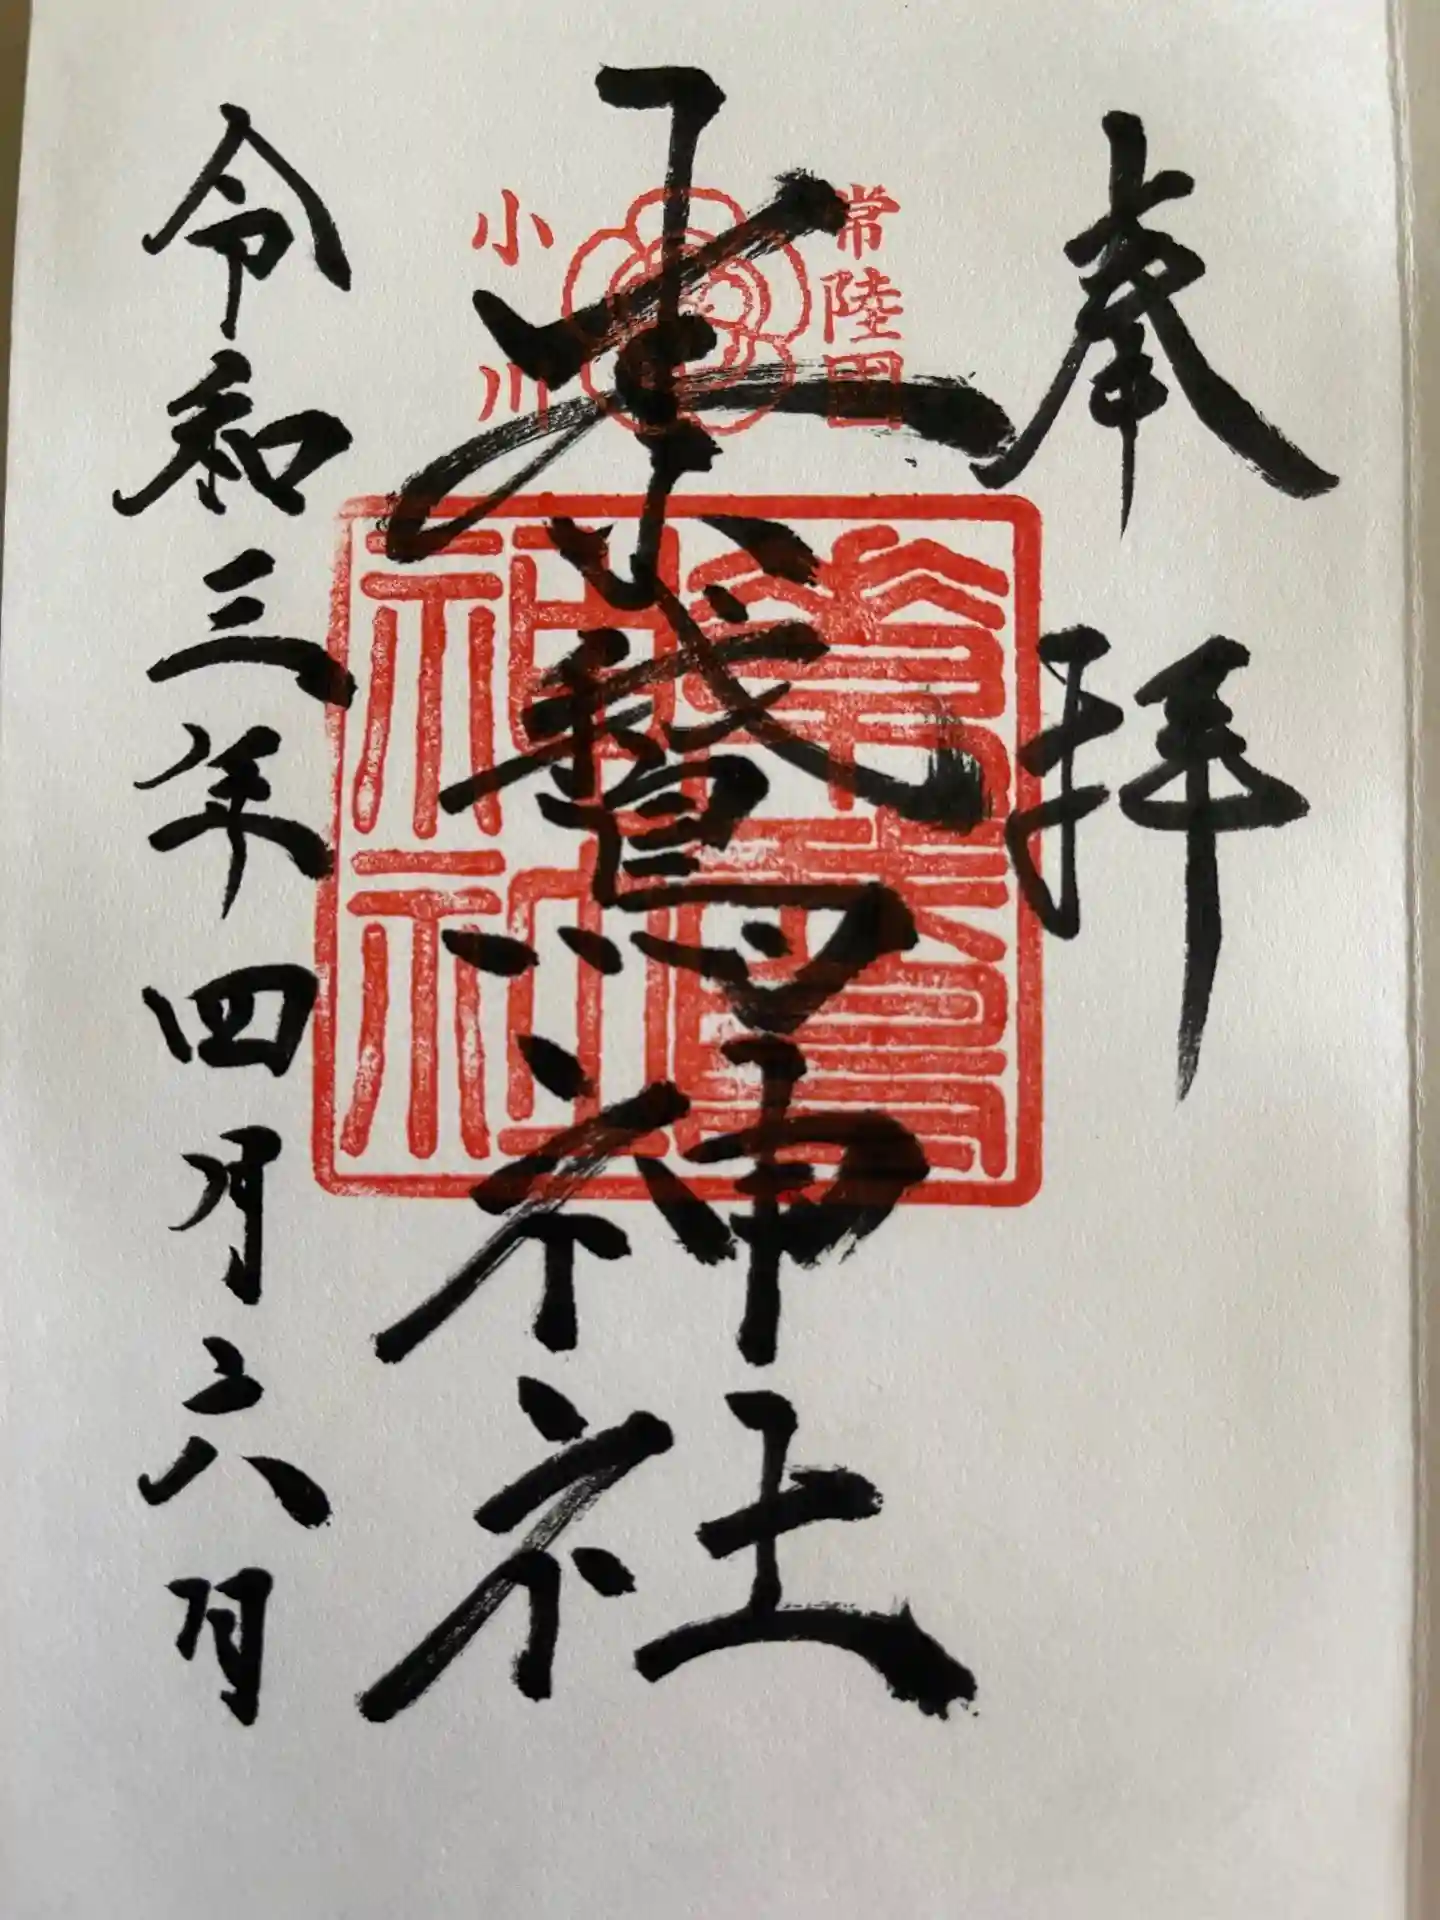 奉拝
常陸国
素鵞神社
小川
素鵞神社
令和三年四月六日